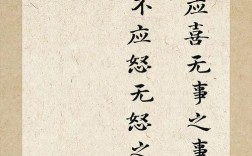 应喜无事之事
不应怒无怒之